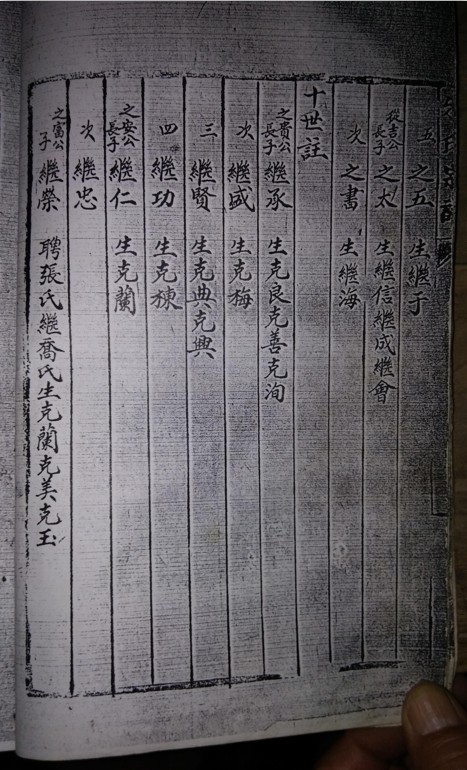 五 之五 生繼于
從吉公長子 之太 生繼信繼成繼會
次 之書 生繼海
十世註
之貴公長子 繼承 生克良克善克洵
次 繼盛 生克梅
三 繼賢 生克典克興
四 繼功 生克棟
之安公長子 繼仁 生克蘭
次 繼忠
之富公子 繼榮 聘張氏繼喬氏生克蘭克美克玉